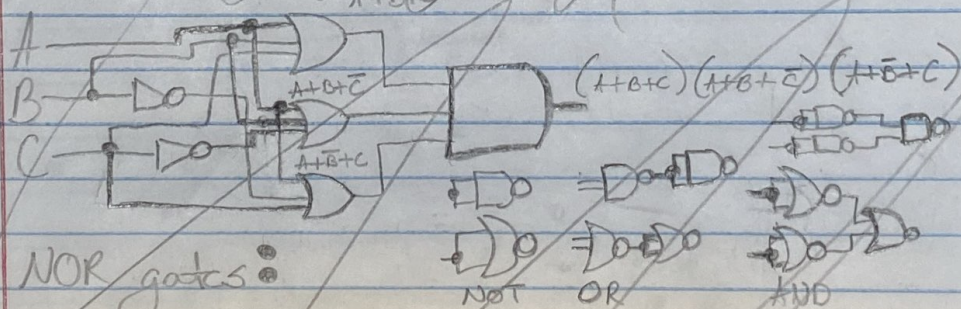 A
A+B+C̅
(A+B+C)(A+B+C̅)(A+B̅+C)
B
A+B̅+C
C
NOR gates:
NOT OR AND